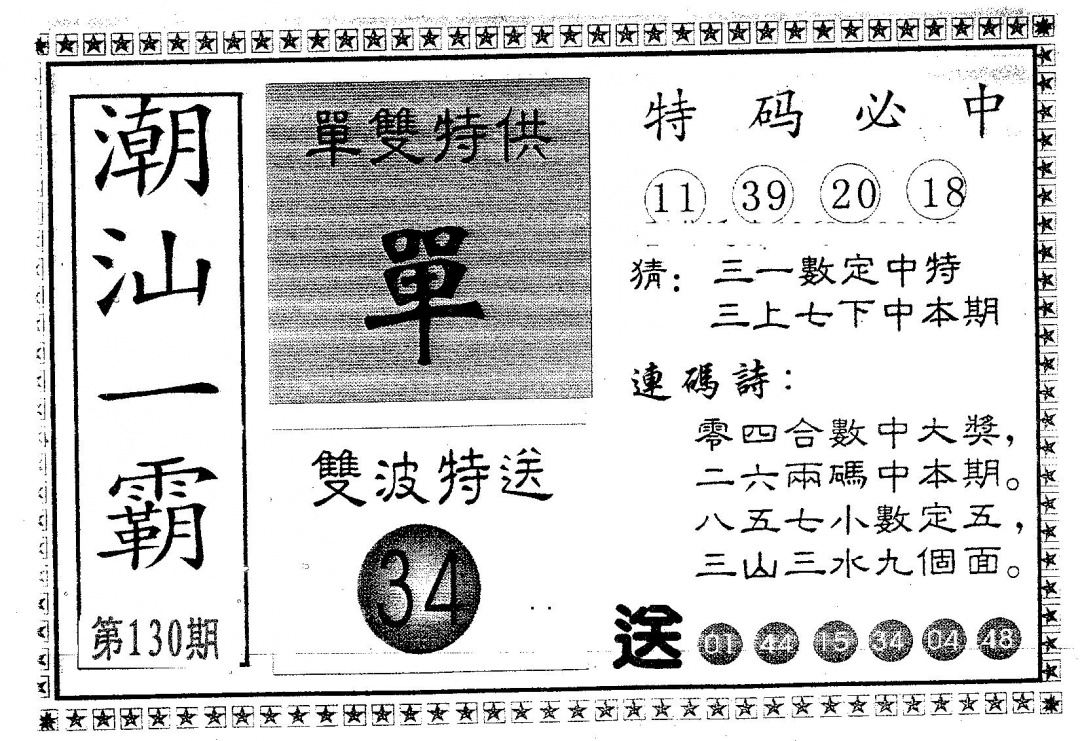 潮汕一霸
第130期
單雙特供
單
雙波特送
34
特码必中
11 39 20 18
猜：三一數定中特
三上七下中本期
連碼詩：
零四合數中大獎，
二六兩碼中本期。
八五七小數定五，
三山三水九個面。
送 01 44 15 34 04 48